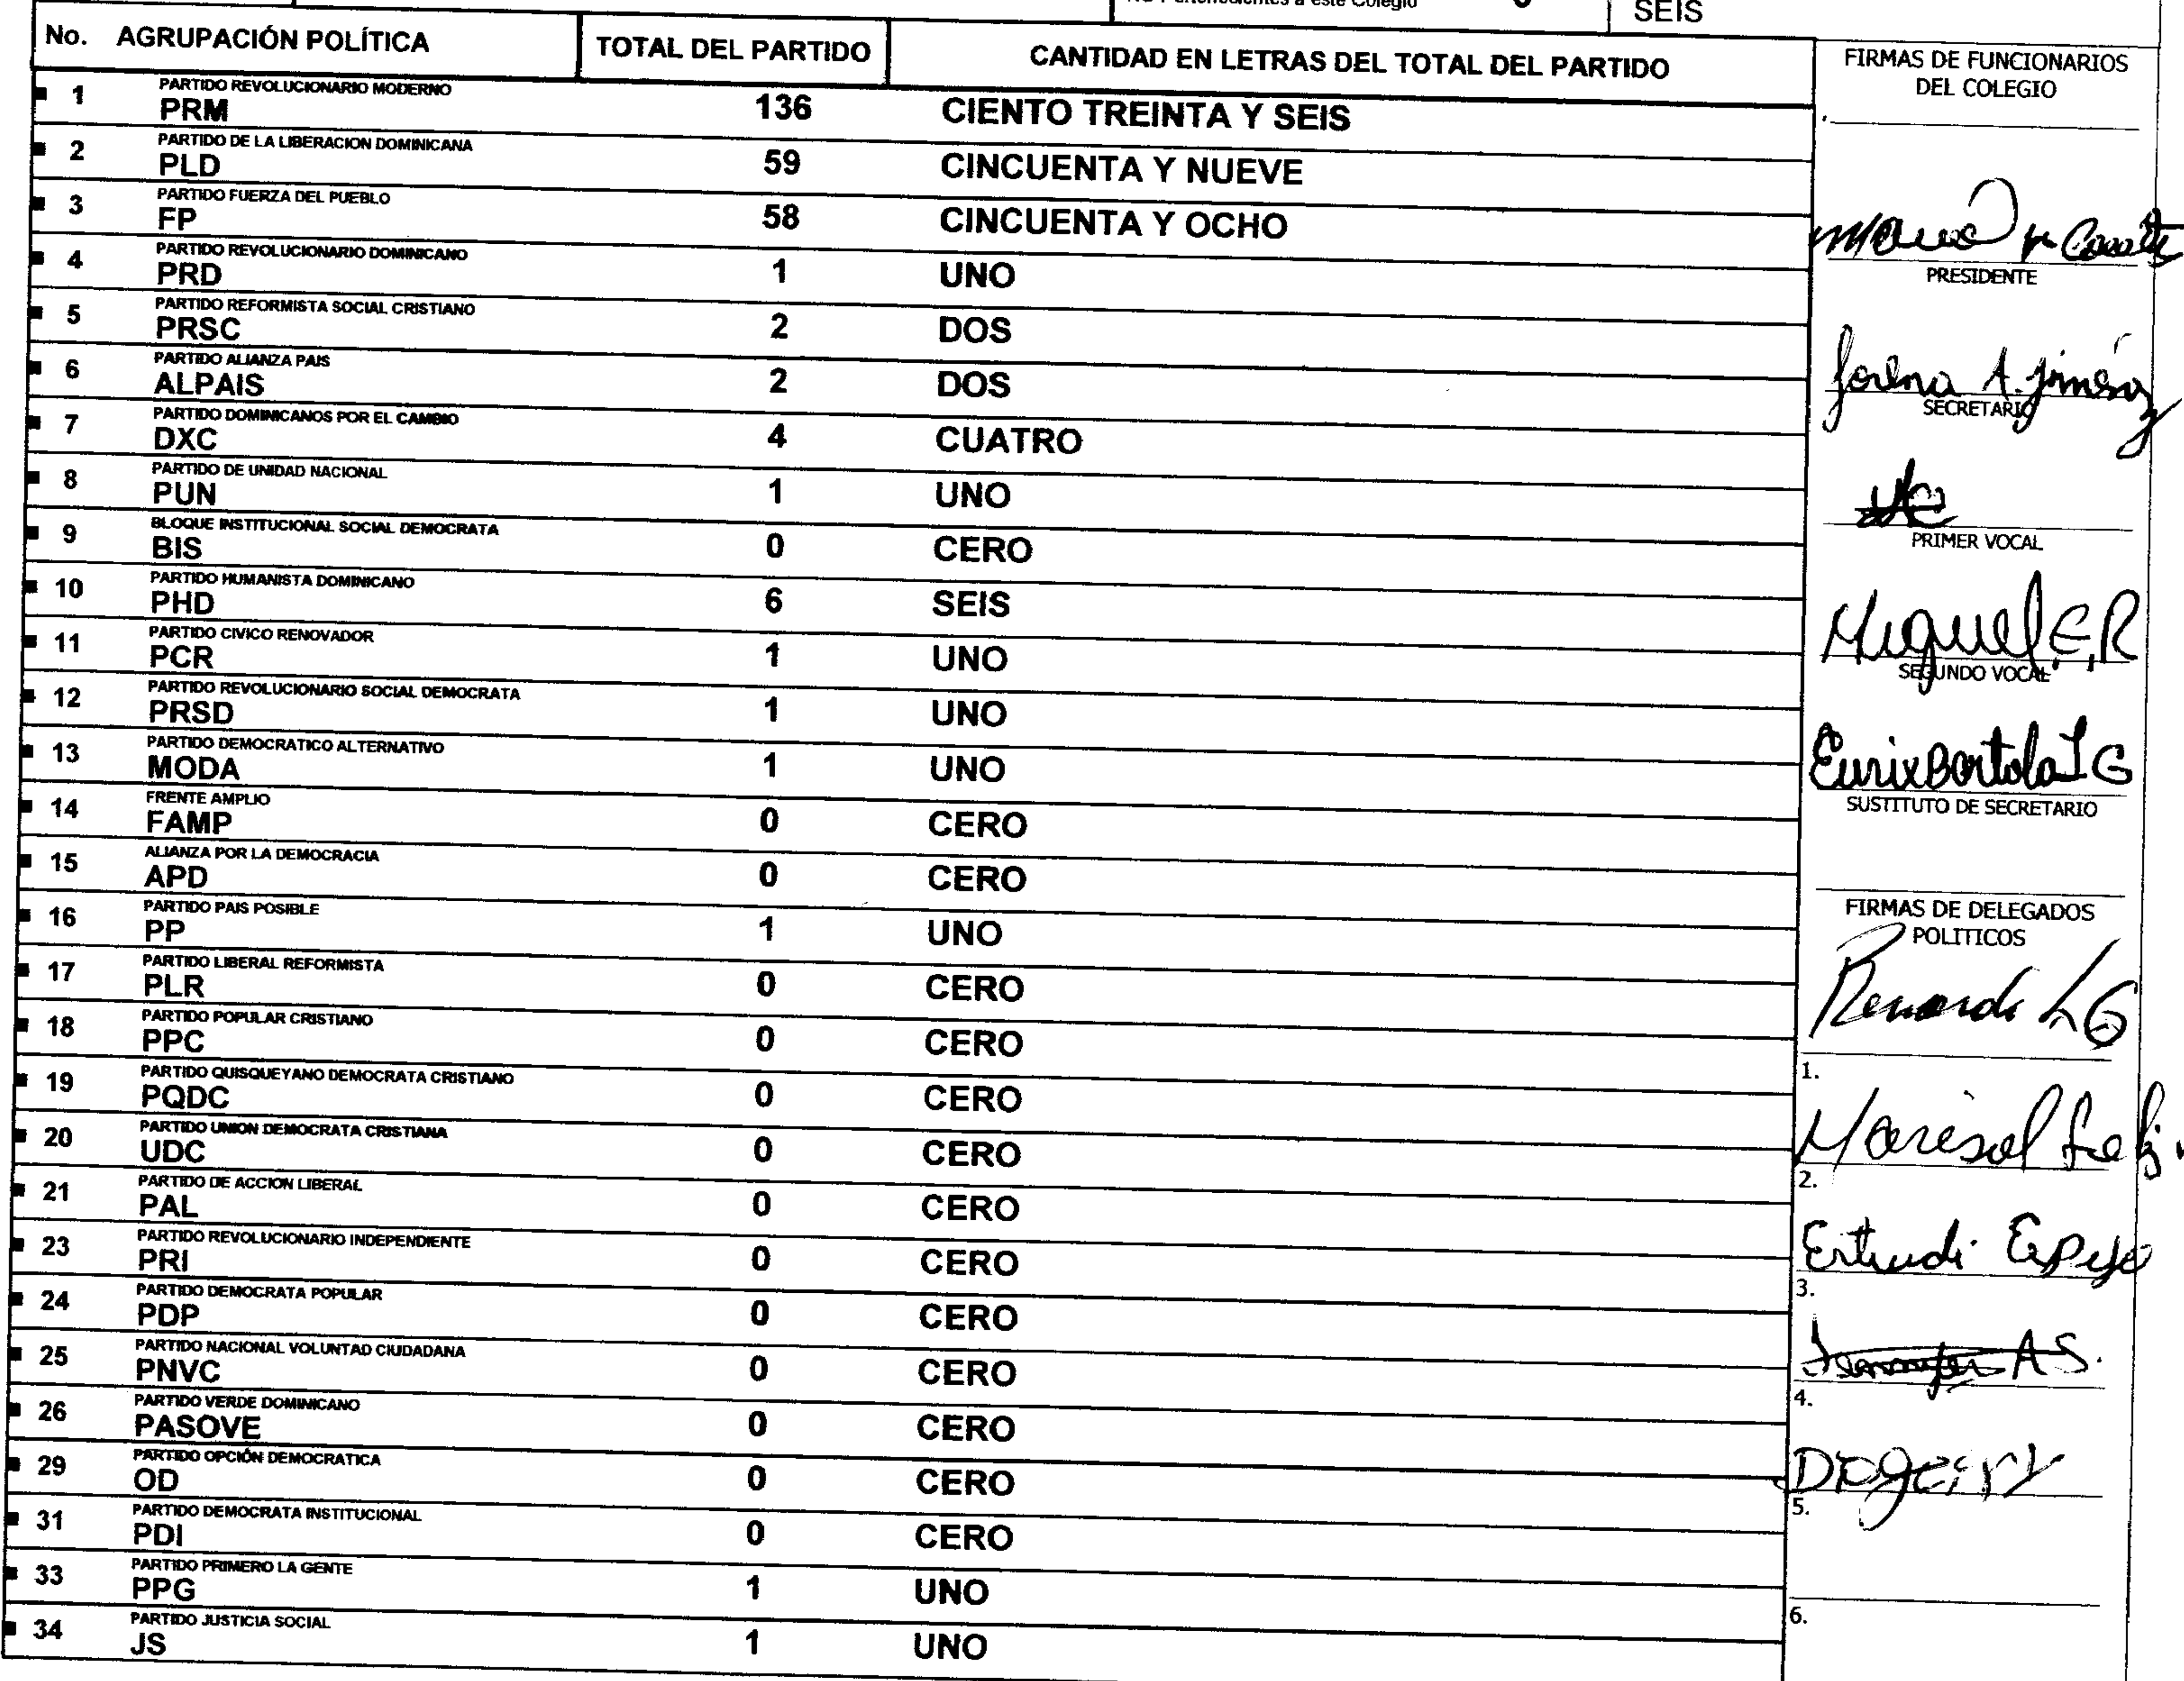 SEIS
No. AGRUPACIÓN POLÍTICA TOTAL DEL PARTIDO CANTIDAD EN LETRAS DEL TOTAL DEL PARTIDO
1 PARTIDO REVOLUCIONARIO MODERNO
PRM 136 CIENTO TREINTA Y SEIS
2 PARTIDO DE LA LIBERACION DOMINICANA
PLD 59 CINCUENTA Y NUEVE
3 PARTIDO FUERZA DEL PUEBLO
FP 58 CINCUENTA Y OCHO
4 PARTIDO REVOLUCIONARIO DOMINICANO
PRD 1 UNO
5 PARTIDO REFORMISTA SOCIAL CRISTIANO
PRSC 2 DOS
6 PARTIDO ALIANZA PAIS
ALPAIS 2 DOS
7 PARTIDO DOMINICANOS POR EL CAMBIO
DXC 4 CUATRO
8 PARTIDO DE UNIDAD NACIONAL
PUN 1 UNO
9 BLOQUE INSTITUCIONAL SOCIAL DEMOCRATA
BIS 0 CERO
10 PARTIDO HUMANISTA DOMINICANO
PHD 6 SEIS
11 PARTIDO CIVICO RENOVADOR
PCR 1 UNO
12 PARTIDO REVOLUCIONARIO SOCIAL DEMOCRATA
PRSD 1 UNO
13 PARTIDO DEMOCRATICO ALTERNATIVO
MODA 1 UNO
14 FRENTE AMPLIO
FAMP 0 CERO
15 ALIANZA POR LA DEMOCRACIA
APD 0 CERO
16 PARTIDO PAIS POSIBLE
PP 1 UNO
17 PARTIDO LIBERAL REFORMISTA
PLR 0 CERO
18 PARTIDO POPULAR CRISTIANO
PPC 0 CERO
19 PARTIDO QUISQUEYANO DEMOCRATA CRISTIANO
PQDC 0 CERO
20 PARTIDO UNION DEMOCRATA CRISTIANA
UDC 0 CERO
21 PARTIDO DE ACCION LIBERAL
PAL 0 CERO
23 PARTIDO REVOLUCIONARIO INDEPENDIENTE
PRI 0 CERO
24 PARTIDO DEMOCRATA POPULAR
PDP 0 CERO
25 PARTIDO NACIONAL VOLUNTAD CIUDADANA
PNVC 0 CERO
26 PARTIDO VERDE DOMINICANO
PASOVE 0 CERO
29 PARTIDO OPCIÓN DEMOCRATICA
OD 0 CERO
31 PARTIDO DEMOCRATA INSTITUCIONAL
PDI 0 CERO
33 PARTIDO PRIMERO LA GENTE
PPG 1 UNO
34 PARTIDO JUSTICIA SOCIAL
JS 1 UNO
FIRMAS DE FUNCIONARIOS
DEL COLEGIO
PRESIDENTE
A. Jiménez
SECRETARIO
PRIMER VOCAL
Miguel E.R
SEGUNDO VOCAL
SUSTITUTO DE SECRETARIO
FIRMAS DE DELEGADOS
POLITICOS
1.
Marisol
2.
3.
A.S.
4.
5.
6.